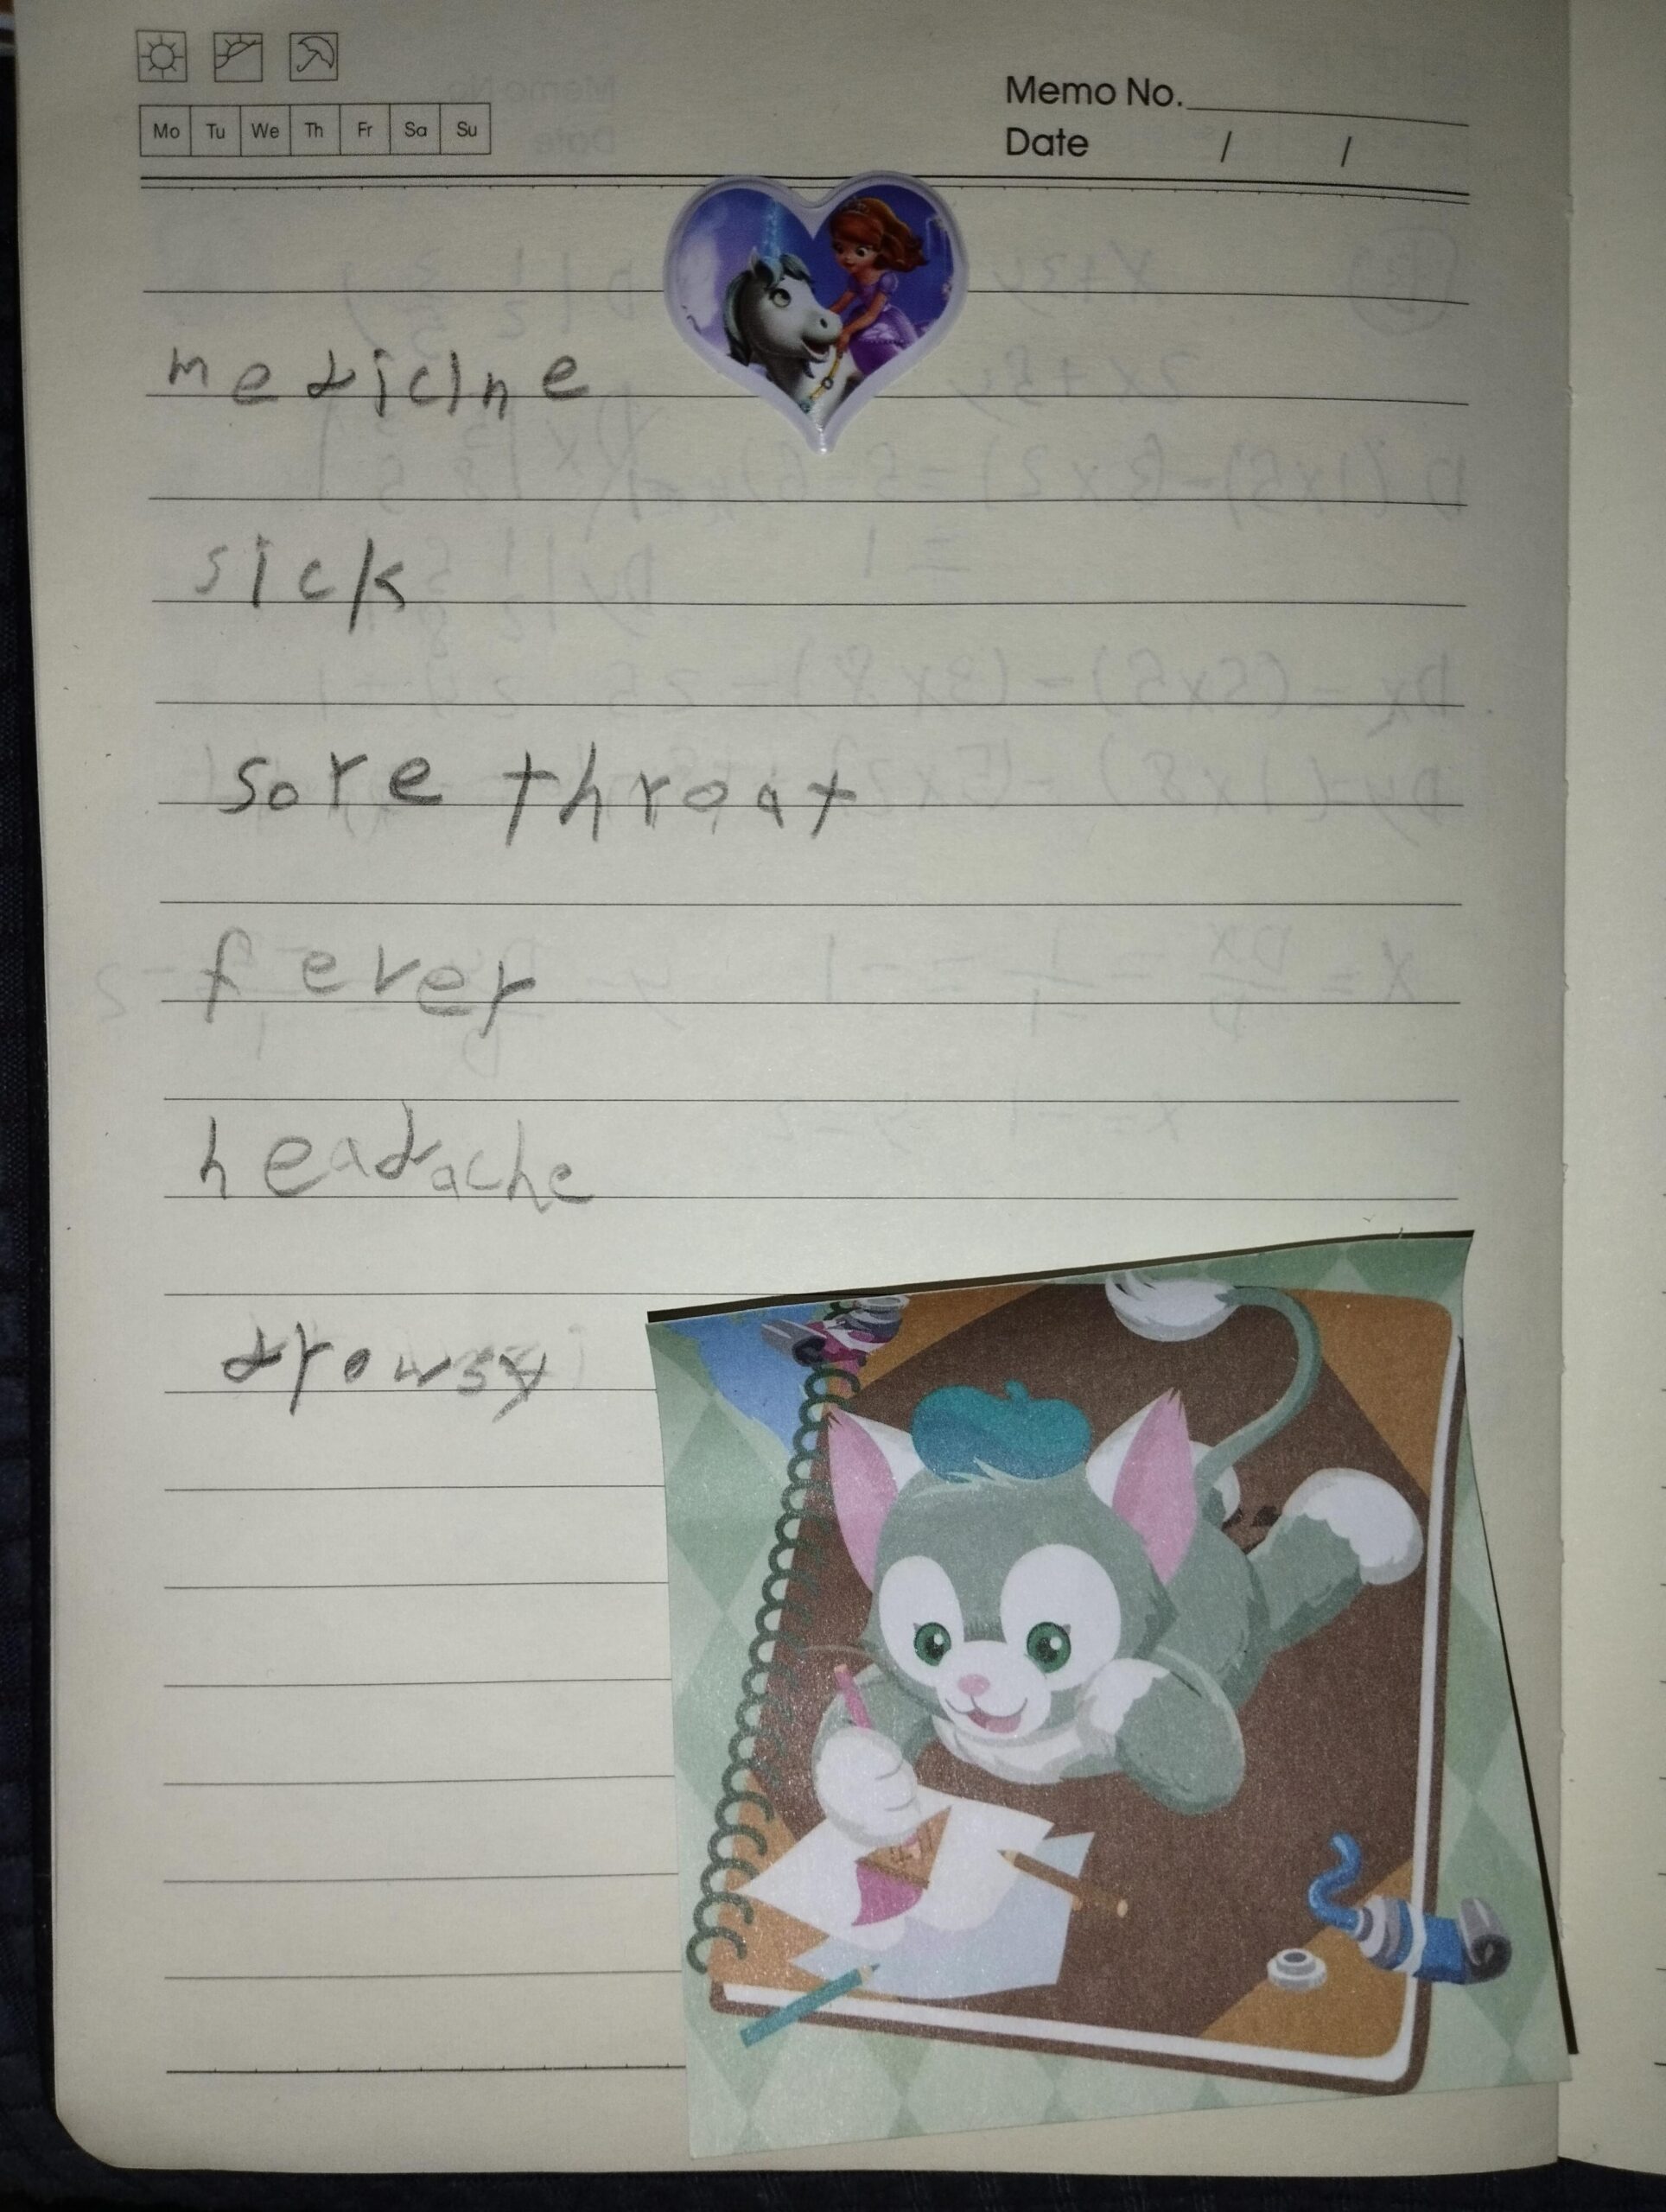 Memo No.
Mo Tu We Th Fr Sa Su
Date / /
medicine
sick
sore throat
fever
headache
drowsy